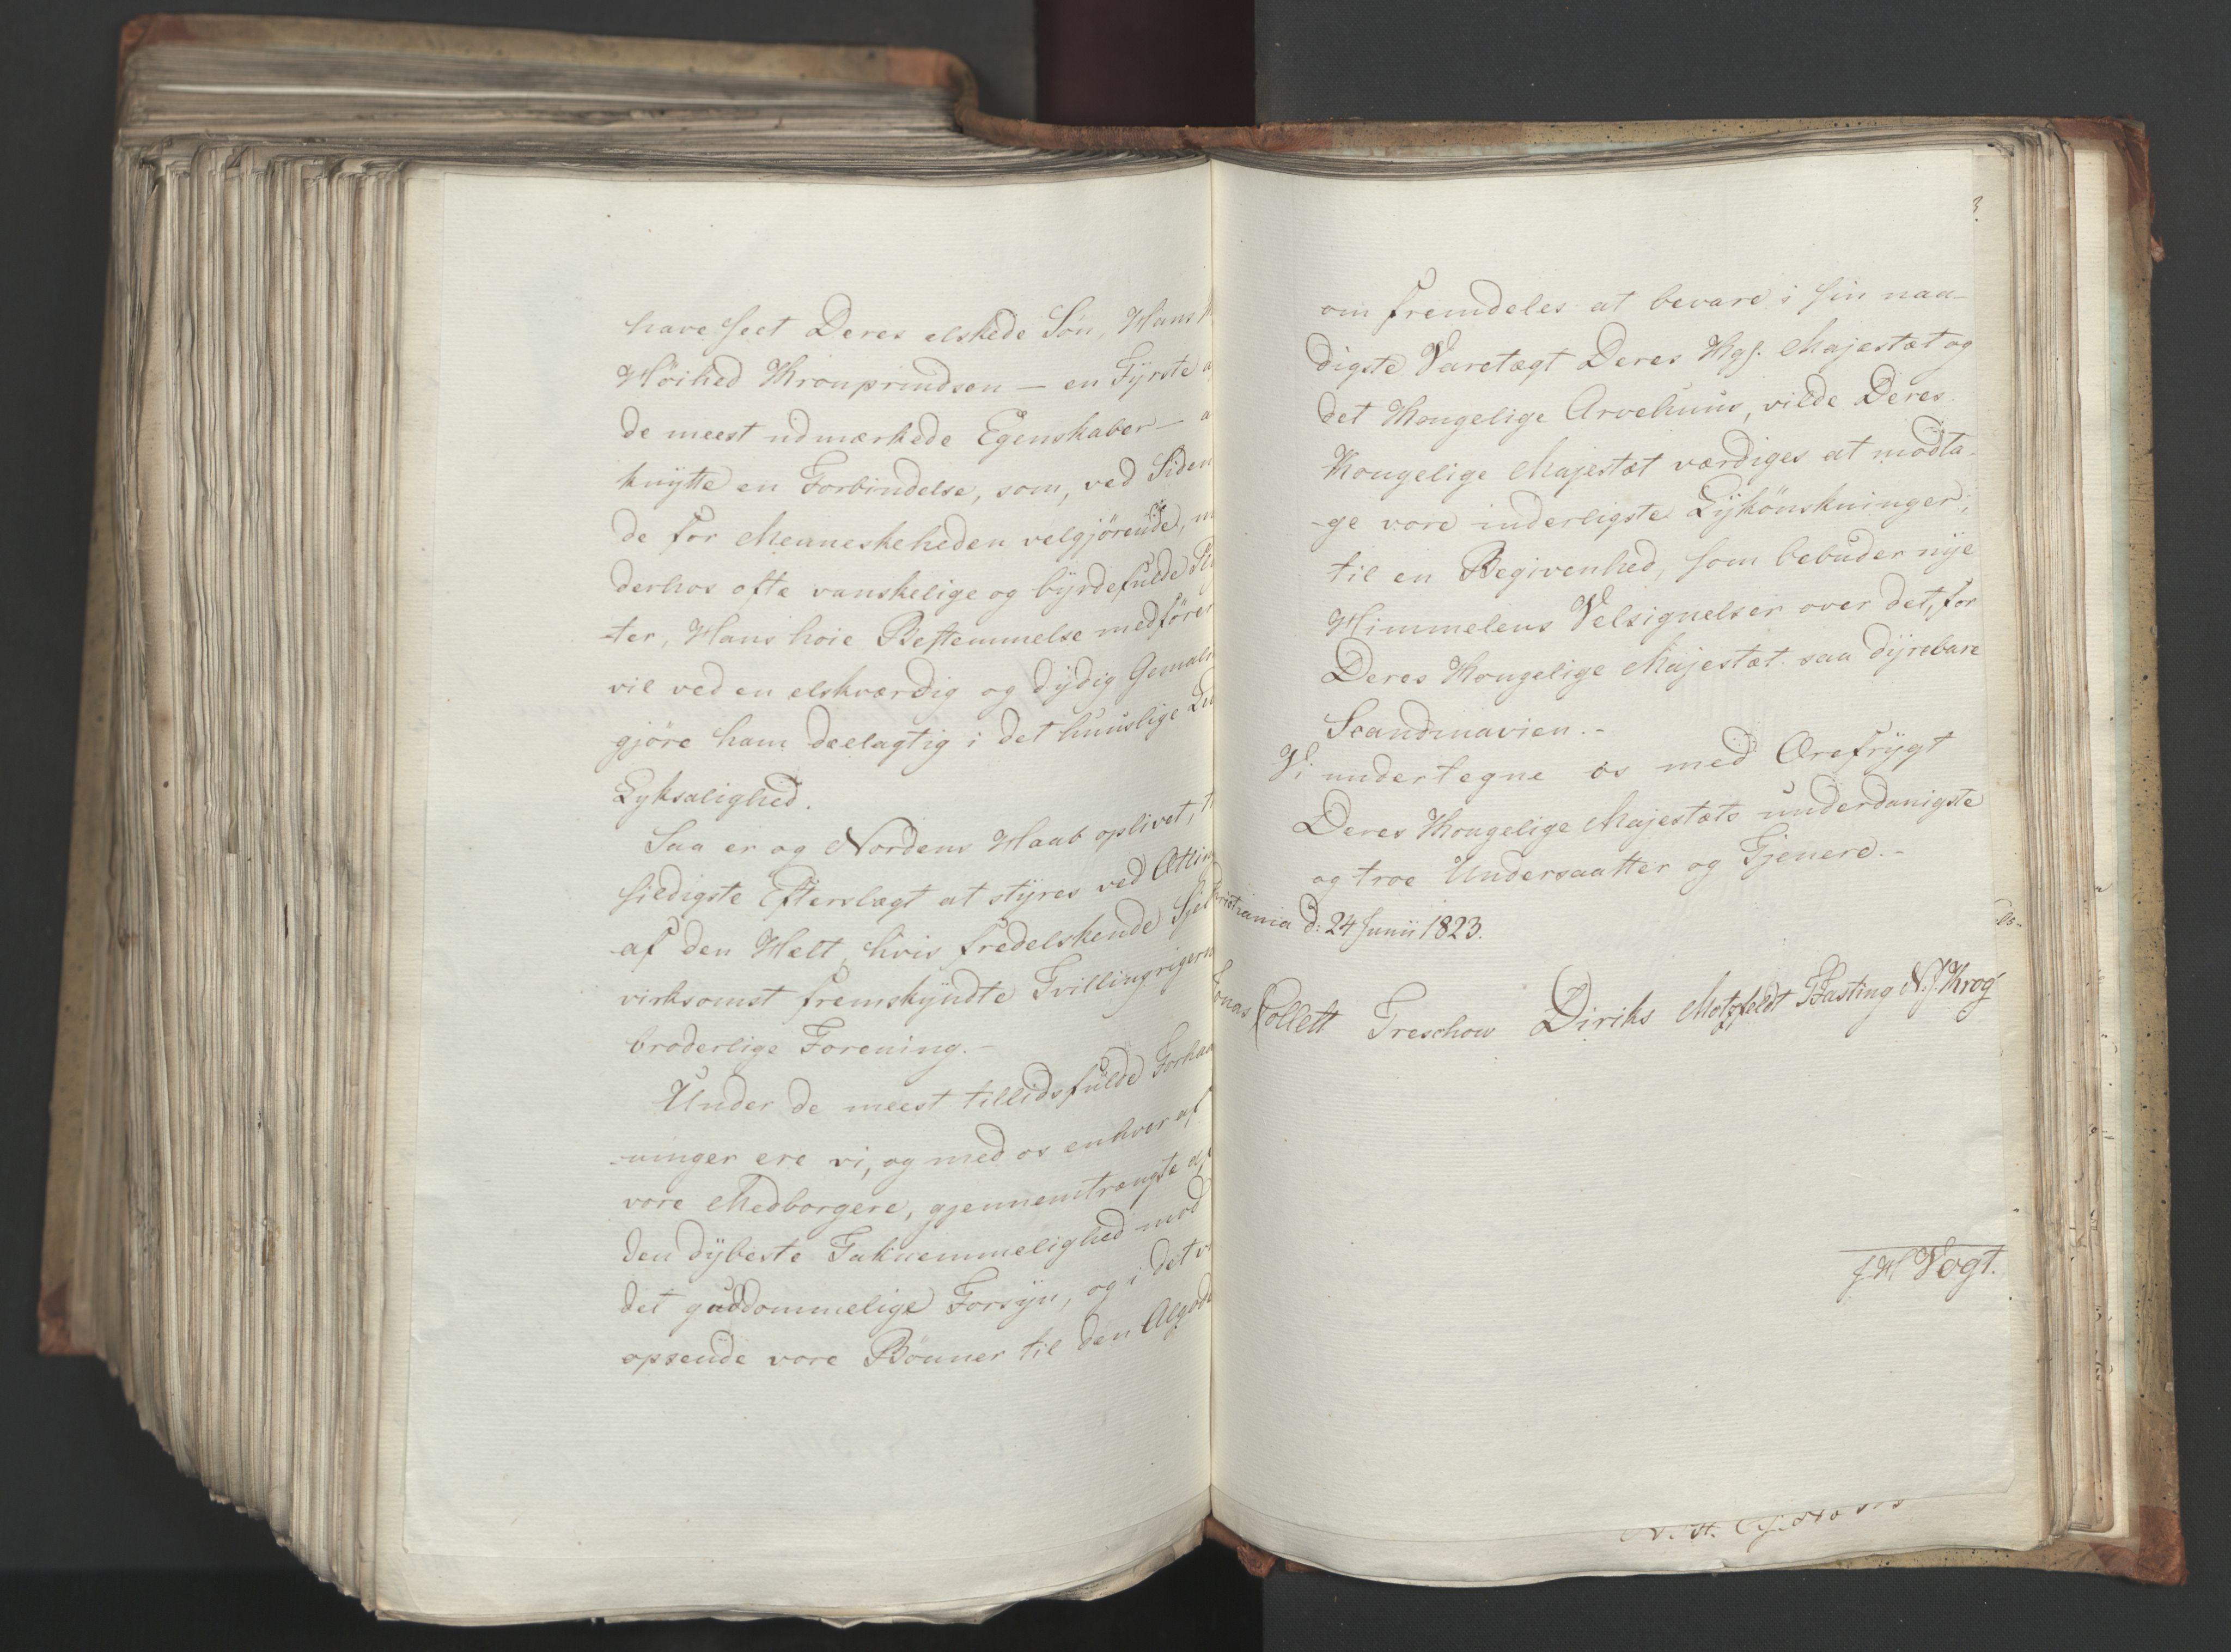 have seet Deres elskede Søn, Hans K
Høihed Kronprindsen — en Fyrste a
de meest udmærkede Egenskaber — a
knytte en Forbindelse, som, ved Siden
de for Menneskeheden velgjørende, m
derhos ofte vanskelige og byrdefulde Pli
-ter, Hans høie Bestemmelse medfører
vil ved en elskværdig og dydig Gemali
gjøre ham deelagtig i det huuslige Liv
Lyksalighed.
Saa er og Nordens Haab oplivet, ti
sildigste Efterslægt at styres ved Ætlin
af den Helt, hvis fredelskende Sjel
virksomst fremskyndte Tvillingrigern
broderlige Forening.-
Under de meest tillidsfulde Forhaa
-ninger ere vi, og med os enhver af
vore Medborgere, gjennemtrængte af
den dybeste Taknemmelighed mod
det guddommelige Forsyn, og i det vi
opsende vore Bønner til den Algode
3.
om fremdeles at bevare i sin naa-
digste Varetægt Deres Kgl. Majestæt og
det Kongelige Arvehuus, vilde Deres
Kongelige Majestæt værdiges at modta-
-ge vore inderligste Lykønskninger,
til en Begivenhed, som bebuder nye
Himmelens Velsignelser over det, for
Deres Kongelige Majestæt saa dyrebare
Scandinavien.-
Vi undertegne os med Ærefrygt
Deres Kongelige Majestæts underdanigste
og troe Undersaatter og Tjenere.-
Christiania d: 24 Junii 1823.
Jonas Collett Treschow Diriks Motzfeldt Fasting N. J. Krog
J H Vogt.